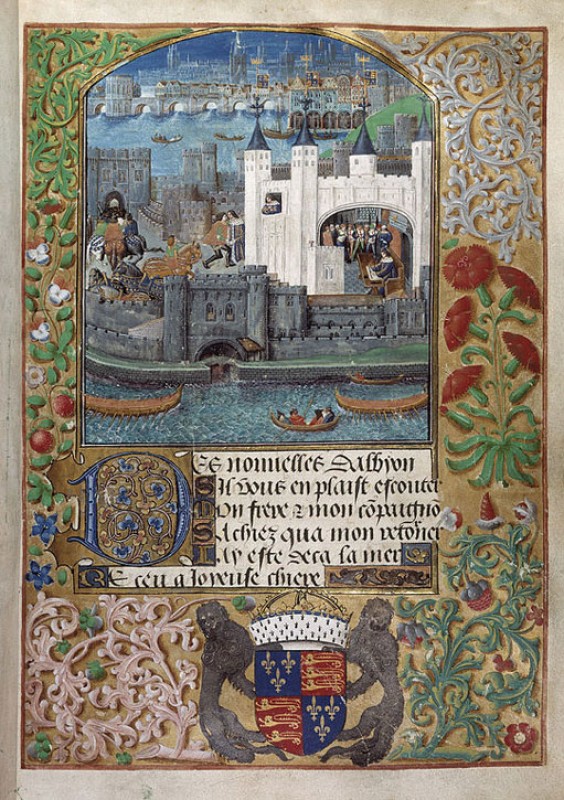 Des nouvelles d'albyon
Sil vous en plaist escouter
Mon frere & mon cōpaignō
Sachiez qua mon retōner
Jay este deca la mer
Receu a Joyeuse chiere